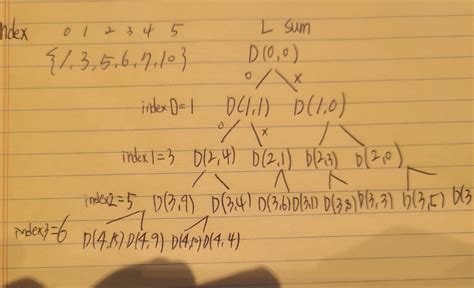 ndex 0 1 2 3 4 5 L sum
{1,3,5,6,7,10} D(0,0)
o x
index0=1 D(1,1) D(1,0)
o x
index1=3 D(2,4) D(2,1) D(2,3) D(2,0)
index2=5 D(3,9) D(3,4) D(3,6) D(3,1) D(3,8) D(3,3) D(3,5) D(3
index3=6 D(4,15) D(4,9) D(4,10) D(4,4)